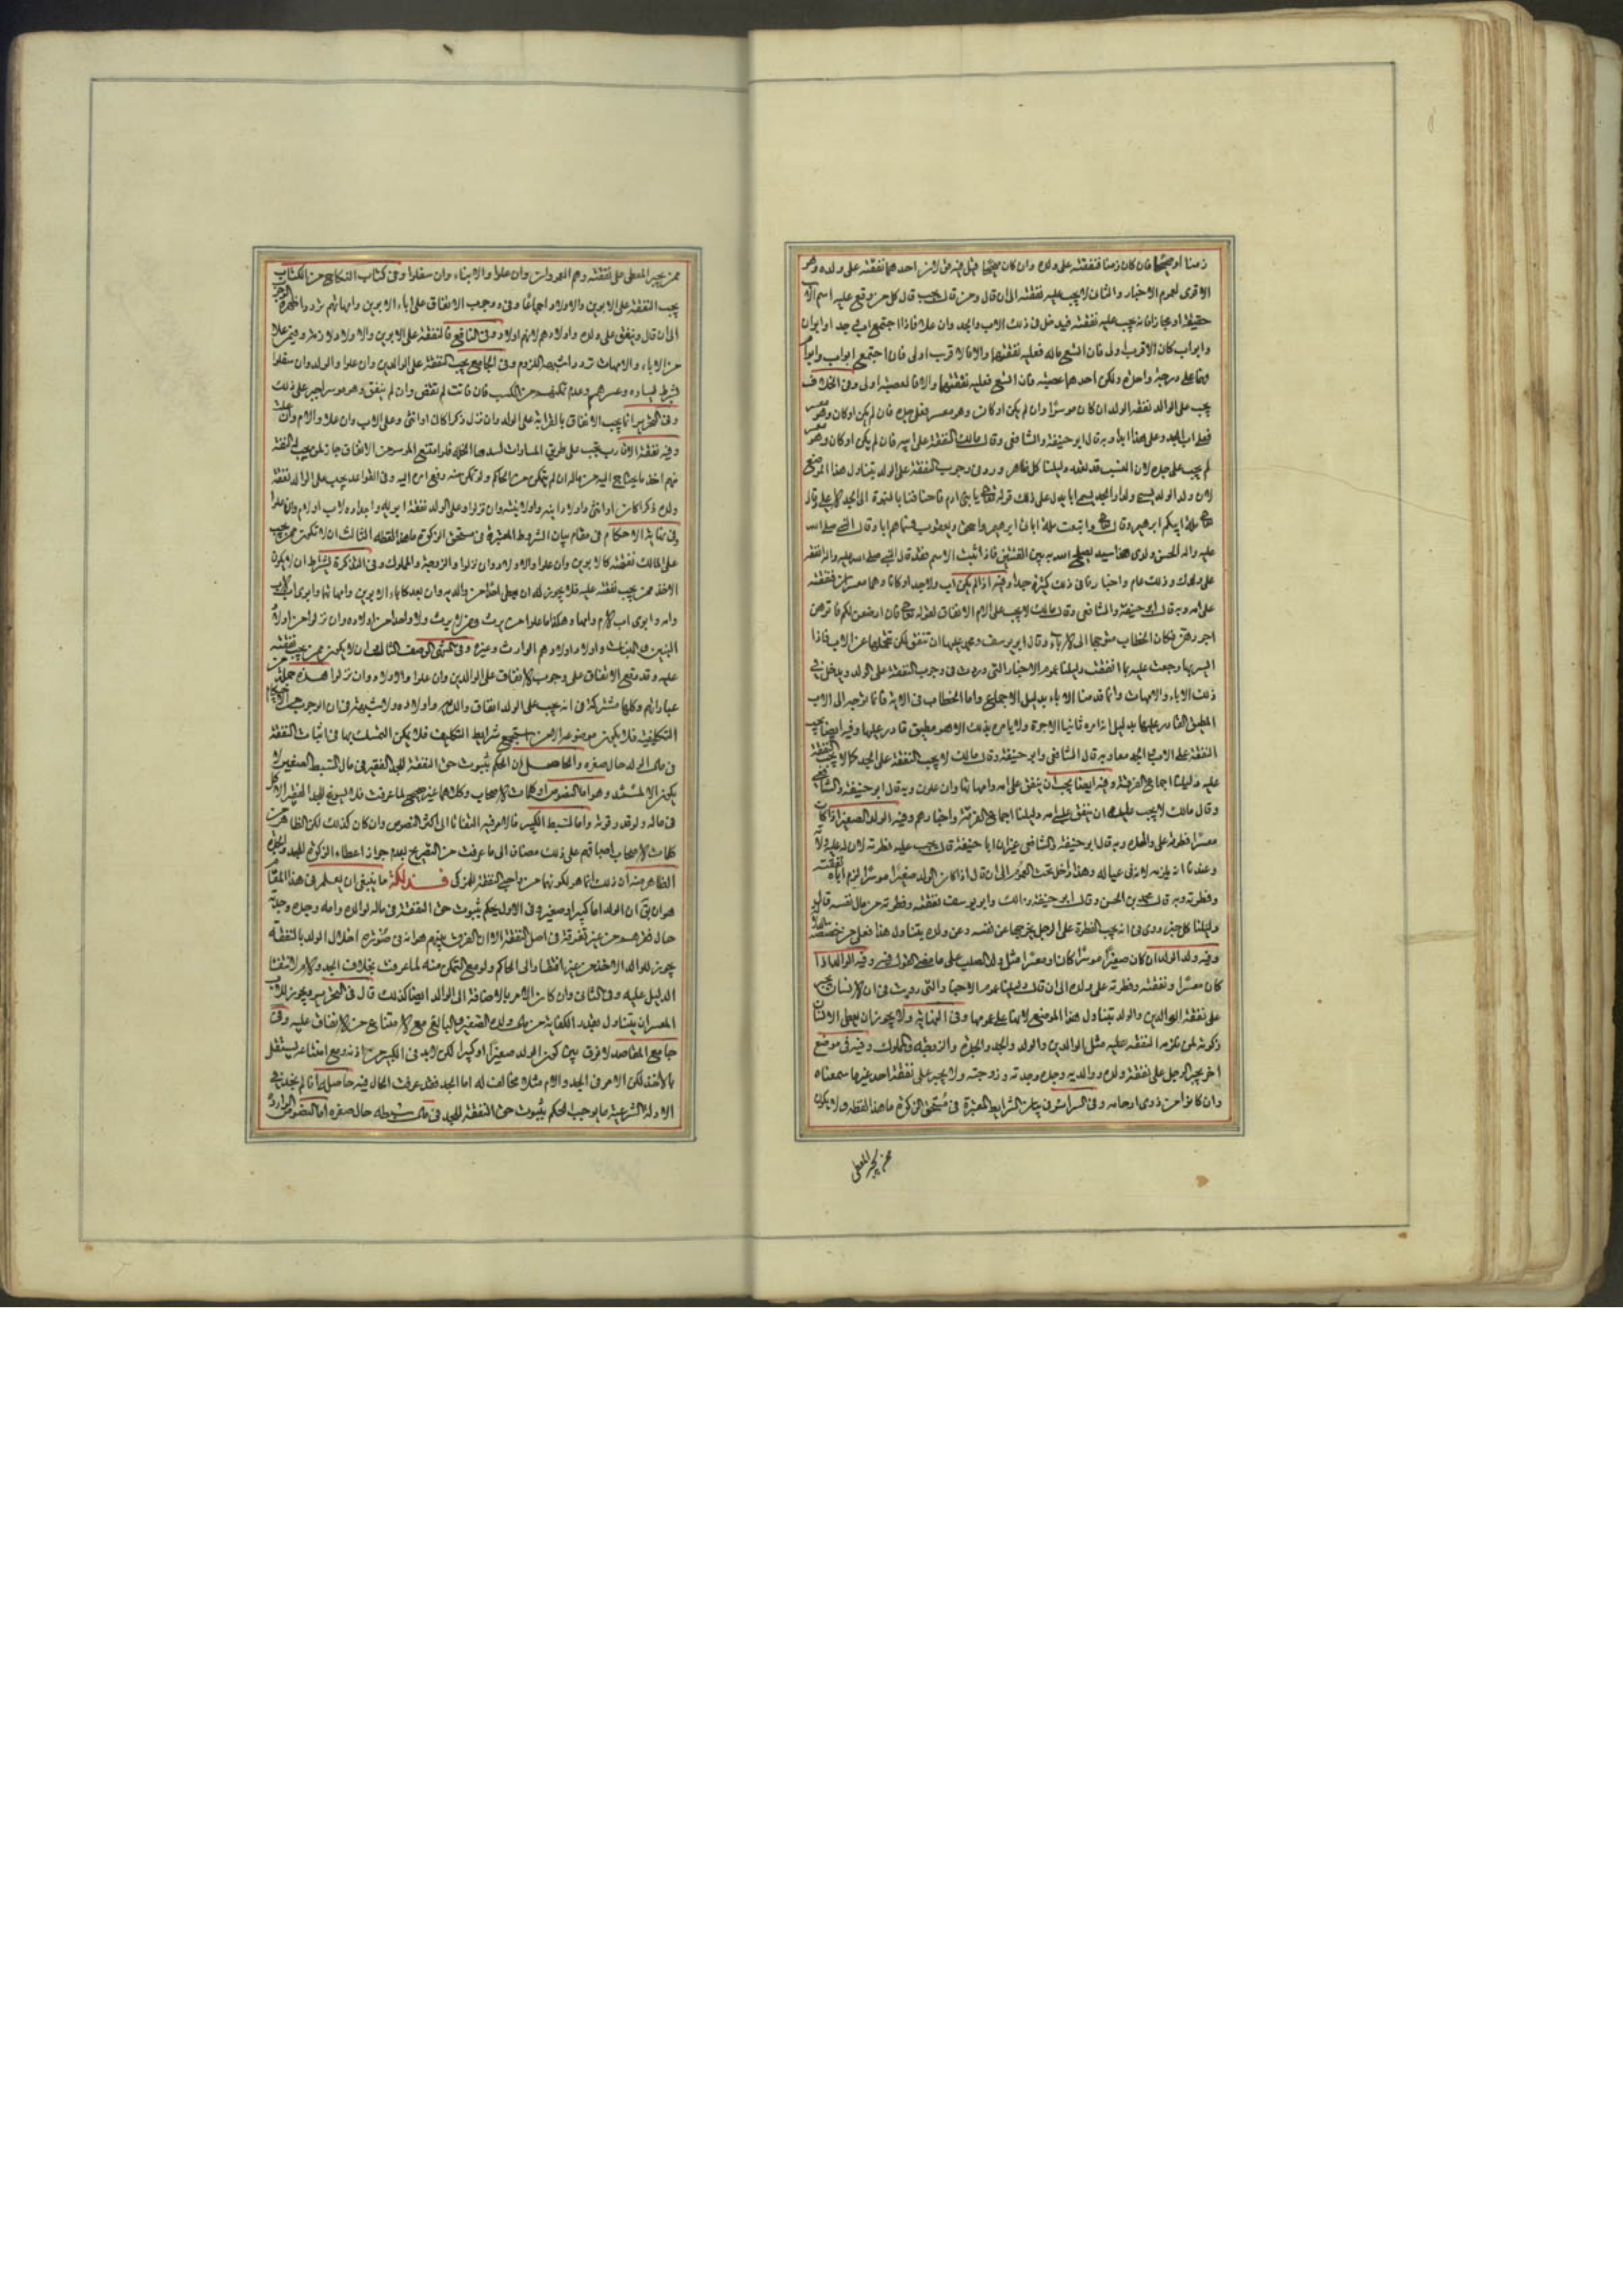 زمنا او صحيحا فان كان زمنا فنفقته على ولده وان كان صحيحا قيل فيه لان احدهما نفقته على ولده وهو
الاقوى لعموم الاخبار والثاني لا يجب عليه نفقته الى ان قال ومن قال يجب قال كل من يقع عليه اسم الاب
حقيقة او مجازا انه يجب عليه نفقته فيدخل في ذلك الاب والجد وان علا فاذا اجتمع اب وجد او ابوان
وابو اب كان الاقرب اولى فان اتسع ماله فعليه نفقتهما والا فالاقرب اولى فان اجتمع ابو اب وابو ام
وهما على درجة واحدة ولكن احدهما عصبة فان اتسع فعليه نفقتهما والا فالعصبة اولى وفي الخلاف
يجب على الوالد نفقة الولد ان كان موسرا وان لم يكن او كان وهو معسر فعلى جده فان لم يكن او كان وهو معسر
فعلى اب الجد وعلى هذا ابدا وبه قال ابو حنيفة والشافعي وقال مالك النفقة على ابيه فان لم يكن او كان وهو معسر
لم يجب على جده لان النسب قد بعد دليلنا كل ظاهر ورد في وجوب النفقة على الولد يتناول هذا الموضع
لان ولد الولد يسمى ولدا والجد يسمى ابا يدل على ذلك قوله تع يا بني ادم فاضافنا بالبنوة الى الجد الاعلى وقال
تع ملة ابيكم ابرهيم وقال تع واتبعت ملة ابائي ابرهيم واسحق ويعقوب فسماهم ابا وقال النبي صلى الله
عليه واله الحسن ولدي هذا سيد يصلح الله به بين الفئتين فاذا ثبت الاسم فقد قال النبي صلى الله عليه واله انفقه
على ولدك وذلك عام واخبارنا في ذلك كثيرة جدا وفيه اذا لم يكن اب ولا جد او كانا وهما معسران فنفقته
على امه وبه قال ابو حنيفة والشافعي وقال مالك لا يجب على الام الانفاق لقوله تع فان ارضعن لكم فاتوهن
اجورهن فكان الخطاب متوجها الى الاباء وقال ابو يوسف ومحمد عليها ان تنفق لكن تتحملها عن الاب فاذا
ايسر بها رجعت عليه بما انفقت دليلنا عموم الاخبار التي وردت في وجوب النفقة على الولد ويدخل في
ذلك الاباء والامهات وانما قدمنا الاباء بدليل الاجماع واما الخطاب في الاية فانما توجه الى الاب
المطيق القادر عليها بدليل انه امره ثانيا بالاجرة ولا يامر بذلك الا هو مطيق قادر عليها وفيه ايضا يجب
النفقة على الاب والجد معا وبه قال الشافعي وابو حنيفة وقال مالك لا يجب النفقة على الجد كما لا يجب النفقة
عليه دليلنا اجماع الفرقة وفيه ايضا يجب ان ينفق على امه وامهاتها وان علون وبه قال ابو حنيفة والشافعي
وقال مالك لا يجب عليه ان ينفق على امه دليلنا اجماع الفرقة واخبارهم وفيه الولد الصغير اذا كان
معسرا فطرته على والده وبه قال ابو حنيفة والشافعي غير ان ابا حنيفة قال يجب عليه فطرته لان له عليه ولاية
وعندنا انه يلزمه لانه في عياله وهذا داخل تحت العموم الى ان قال اذا كان الولد صغيرا موسرا لزم اباه نفقته
وفطرته وبه قال محمد بن الحسن وقال ابو حنيفة ومالك وابو يوسف نفقته وفطرته من مال نفسه
دليلنا كل خبر روي في انه يجب الفطرة على الرجل يخرجها عن نفسه وعن ولده يتناول هذا فعلى من خصصه
وفيه ولد الولد ان كان صغيرا موسرا كان او معسرا مثل ولد الصلب على ما مضى القول فيه وفيه الوالد اذا
كان معسرا ونفقته وفطرته على ولده الى ان قال دليلنا عموم الاخبار والتي رويت في ان الانسان يجبر
على نفقة الوالدين والولد يتناول هذا الموضع لانها على عمومها وفي النهاية ولا يجوز ان يعطي الانسان
زكوته لمن تلزمه النفقة عليه مثل الوالدين والولد والجد والجدة والزوجة والمملوك وفيه في موضع
اخر يجبر الرجل على نفقة ولده ووالديه وجده وجدته وزوجته ولا يجبر على نفقة احد غيرها سمعناه
وان كانوا من ذوي ارحامه وفي السرائر في بيان الشرايط المعتبرة في مستحق الزكوة ما هذا لفظه ولا يكون
ممن يجبر المعطي
ممن يجبر المعطي على نفقته وهم العمودان وان علوا والابناء وان سفلوا وفي كتاب النكاح من الكتاب
يجب النفقة على الابوين والاولاد اجماعا وفي وجوب الانفاق على اباء الابوين وامهاتهم تردد اظهره الوجوب
الى ان قال وينفق على ولده واولادهم لانهم اولاد وفي النافع فالنفقة على الابوين والاولاد لازمة وفيمن علا
من الاباء والامهات تردد اشبهه اللزوم وفي الجامع يجب النفقة على الوالدين وان علوا والولد وان سفلوا
بشرط يساره وعسرهم وعدم تمكنهم من الكسب فان فاتت لم تقض وان لم ينفق وهو موسر اجبر على ذلك
وفي التحرير انما يجب الانفاق بالقرابة على الولد وان نزل ذكرا كان او انثى وعلى الاب وان علا والام وان علت
وفيه نفقة الاقارب يجب على طريق المساواة لسد الخلة فلو امتنع الموسر من الانفاق جاز لمن يجب له النفقة
منهم اخذ ما يحتاج اليه من ماله ان لم يتمكن من الحاكم ولو تمكن منه رفع امره اليه وفي القواعد يجب على الوالد نفقة
ولده ذكرا كان او انثى واولاد ابنه واولاد بنته وان نزلوا وعلى الولد نفقة ابويه واجداده لاب او لام وان علوا
وفي نهاية الاحكام في مقام بيان الشروط المعتبرة في مستحق الزكوة ما هذا لفظه الثالث ان لا تكون ممن يجب
على المالك نفقته كالابوين وان علوا والاولاد وان نزلوا والزوجة والمملوك وفي التذكرة يشترط ان لا يكون
الاخذ ممن يجب نفقته عليه فلا يجوز له ان يعطي احدا من والديه وان بعد كاباء الابوين وامهاتهما وابوي اب الاب
وامه وابوي اب الام وامها وهكذا ما علوا من يرث ومن لا يرث ولا واحدا من اولاده وان نزلوا من اولاد
البنين والبنات واولاد اولادهم الوارث وغيره وفي المنتهى الوصف الثالث ان لا يكون ممن يجب نفقته
عليه وقد وقع الاتفاق على وجوب الانفاق على الوالدين وان علوا والاولاد وان نزلوا هذه جملة من
عباراتهم وكلها مشتركة في انه يجب على الولد انفاق والده واولاده ولا شبهة في ان الوجوب من الاحكام
التكليفية فلا يكون موضوعه الا من استجمع شرايط التكليف فلا يمكن التمسك بها في اثبات النفقة
في مال الولد حال صغره والحاصل ان الحكم بثبوت حق النفقة للجد الفقير في مال السبط الصغير لا
يكون الا لمستند وهو اما النصوص او كلمات الاصحاب وكلاهما غير صحيح لما عرفت فلا يسوغ للجد الفقير الاكل
في ماله ولو قدر قوته واما لسبط الكبير فالامر فيه التفاتا الى اكثر النصوص وان كان كذلك لكن الظاهر من
كلمات الاصحاب اطباقهم على ذلك مضافا الى ما عرفت من التصريح بعدم جواز اعطاء الزكوة للجد والجدة
الظاهر منه ان ذلك انما هو لكونهما من واجبي النفقة للمزكي فذلكة ما ينبغي ان يعلم في هذا المقام
هو ان يق ان الولد اما كبير او صغير وفي الاول يحكم بثبوت حق النفقة في ماله لوالده وامه وجده وجدته
حال فقرهم من غير تفرقة في اصل النفقة الا ان الفرق بينهم هو انه في صورة اخلال الولد بالنفقة
يجوز للوالد الاخذ من غير افتقار الى الحاكم ولو مع التمكن منه لما عرفت بخلاف الجد والام لانتفاء
الدليل عليه وفي الثاني وان كان الامر بالاضافة الى الوالد ايضا كذلك قال في التحرير ويجوز للاب
المعسر ان يتناول بقدر الكفاية من مال ولده الصغير والبالغ مع الامتناع من الانفاق عليه وفي
جامع المقاصد لا فرق بين كون الولد صغيرا او كبيرا لكن لابد في الكبير من اذنه ومع امتناعه يستقل
بالاخذ لكن الامر في الجد والام مثلا مخالف له اما الجد فقد عرفت الحال فيه حاصله انا لم نجد في
الادلة الشرعية ما يوجب الحكم بثبوت حق النفقة للجد في مال سبطه حال صغره اما النصوص الواردة